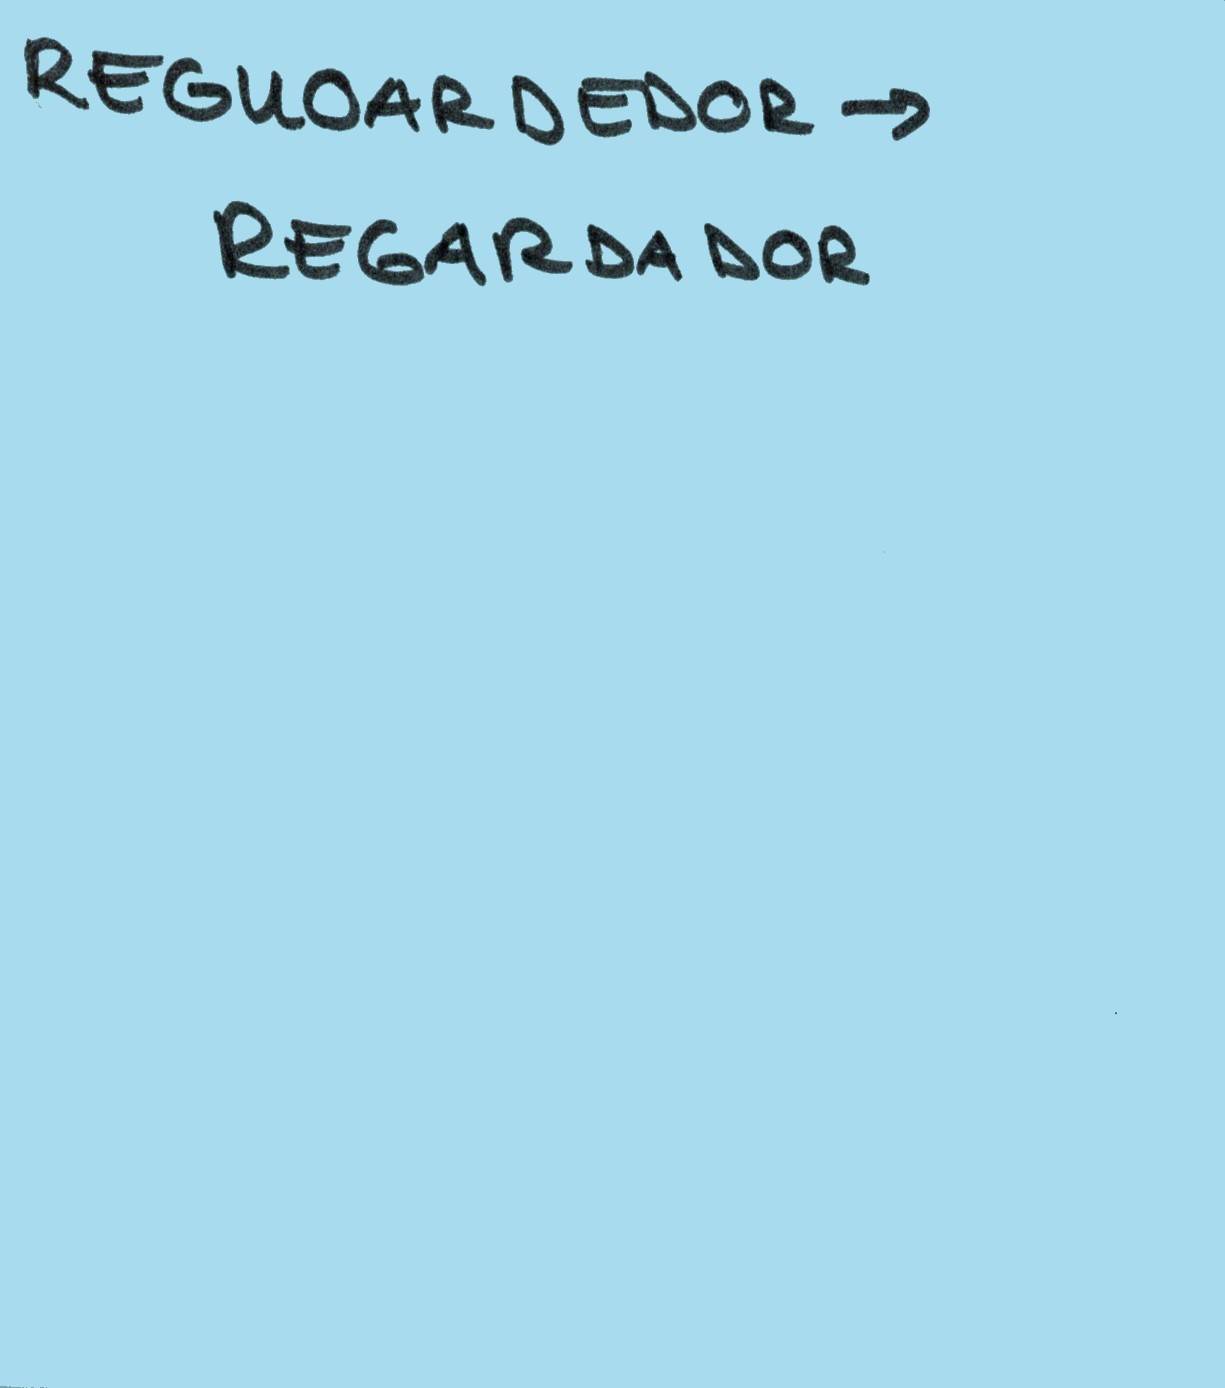 REGUOARDEDOR →
REGARDADOR